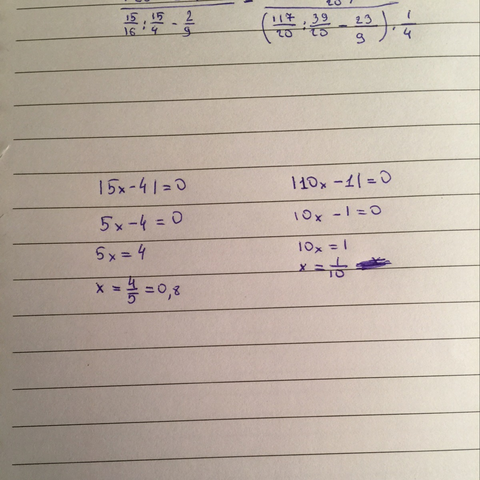 15/16 : 15/4 - 2/9
(117/20 : 39/20 - 23/9) · 1/4
|5x-4|=0
5x-4=0
5x=4
x=4/5=0,8
|10x-1|=0
10x-1=0
10x=1
x=1/10